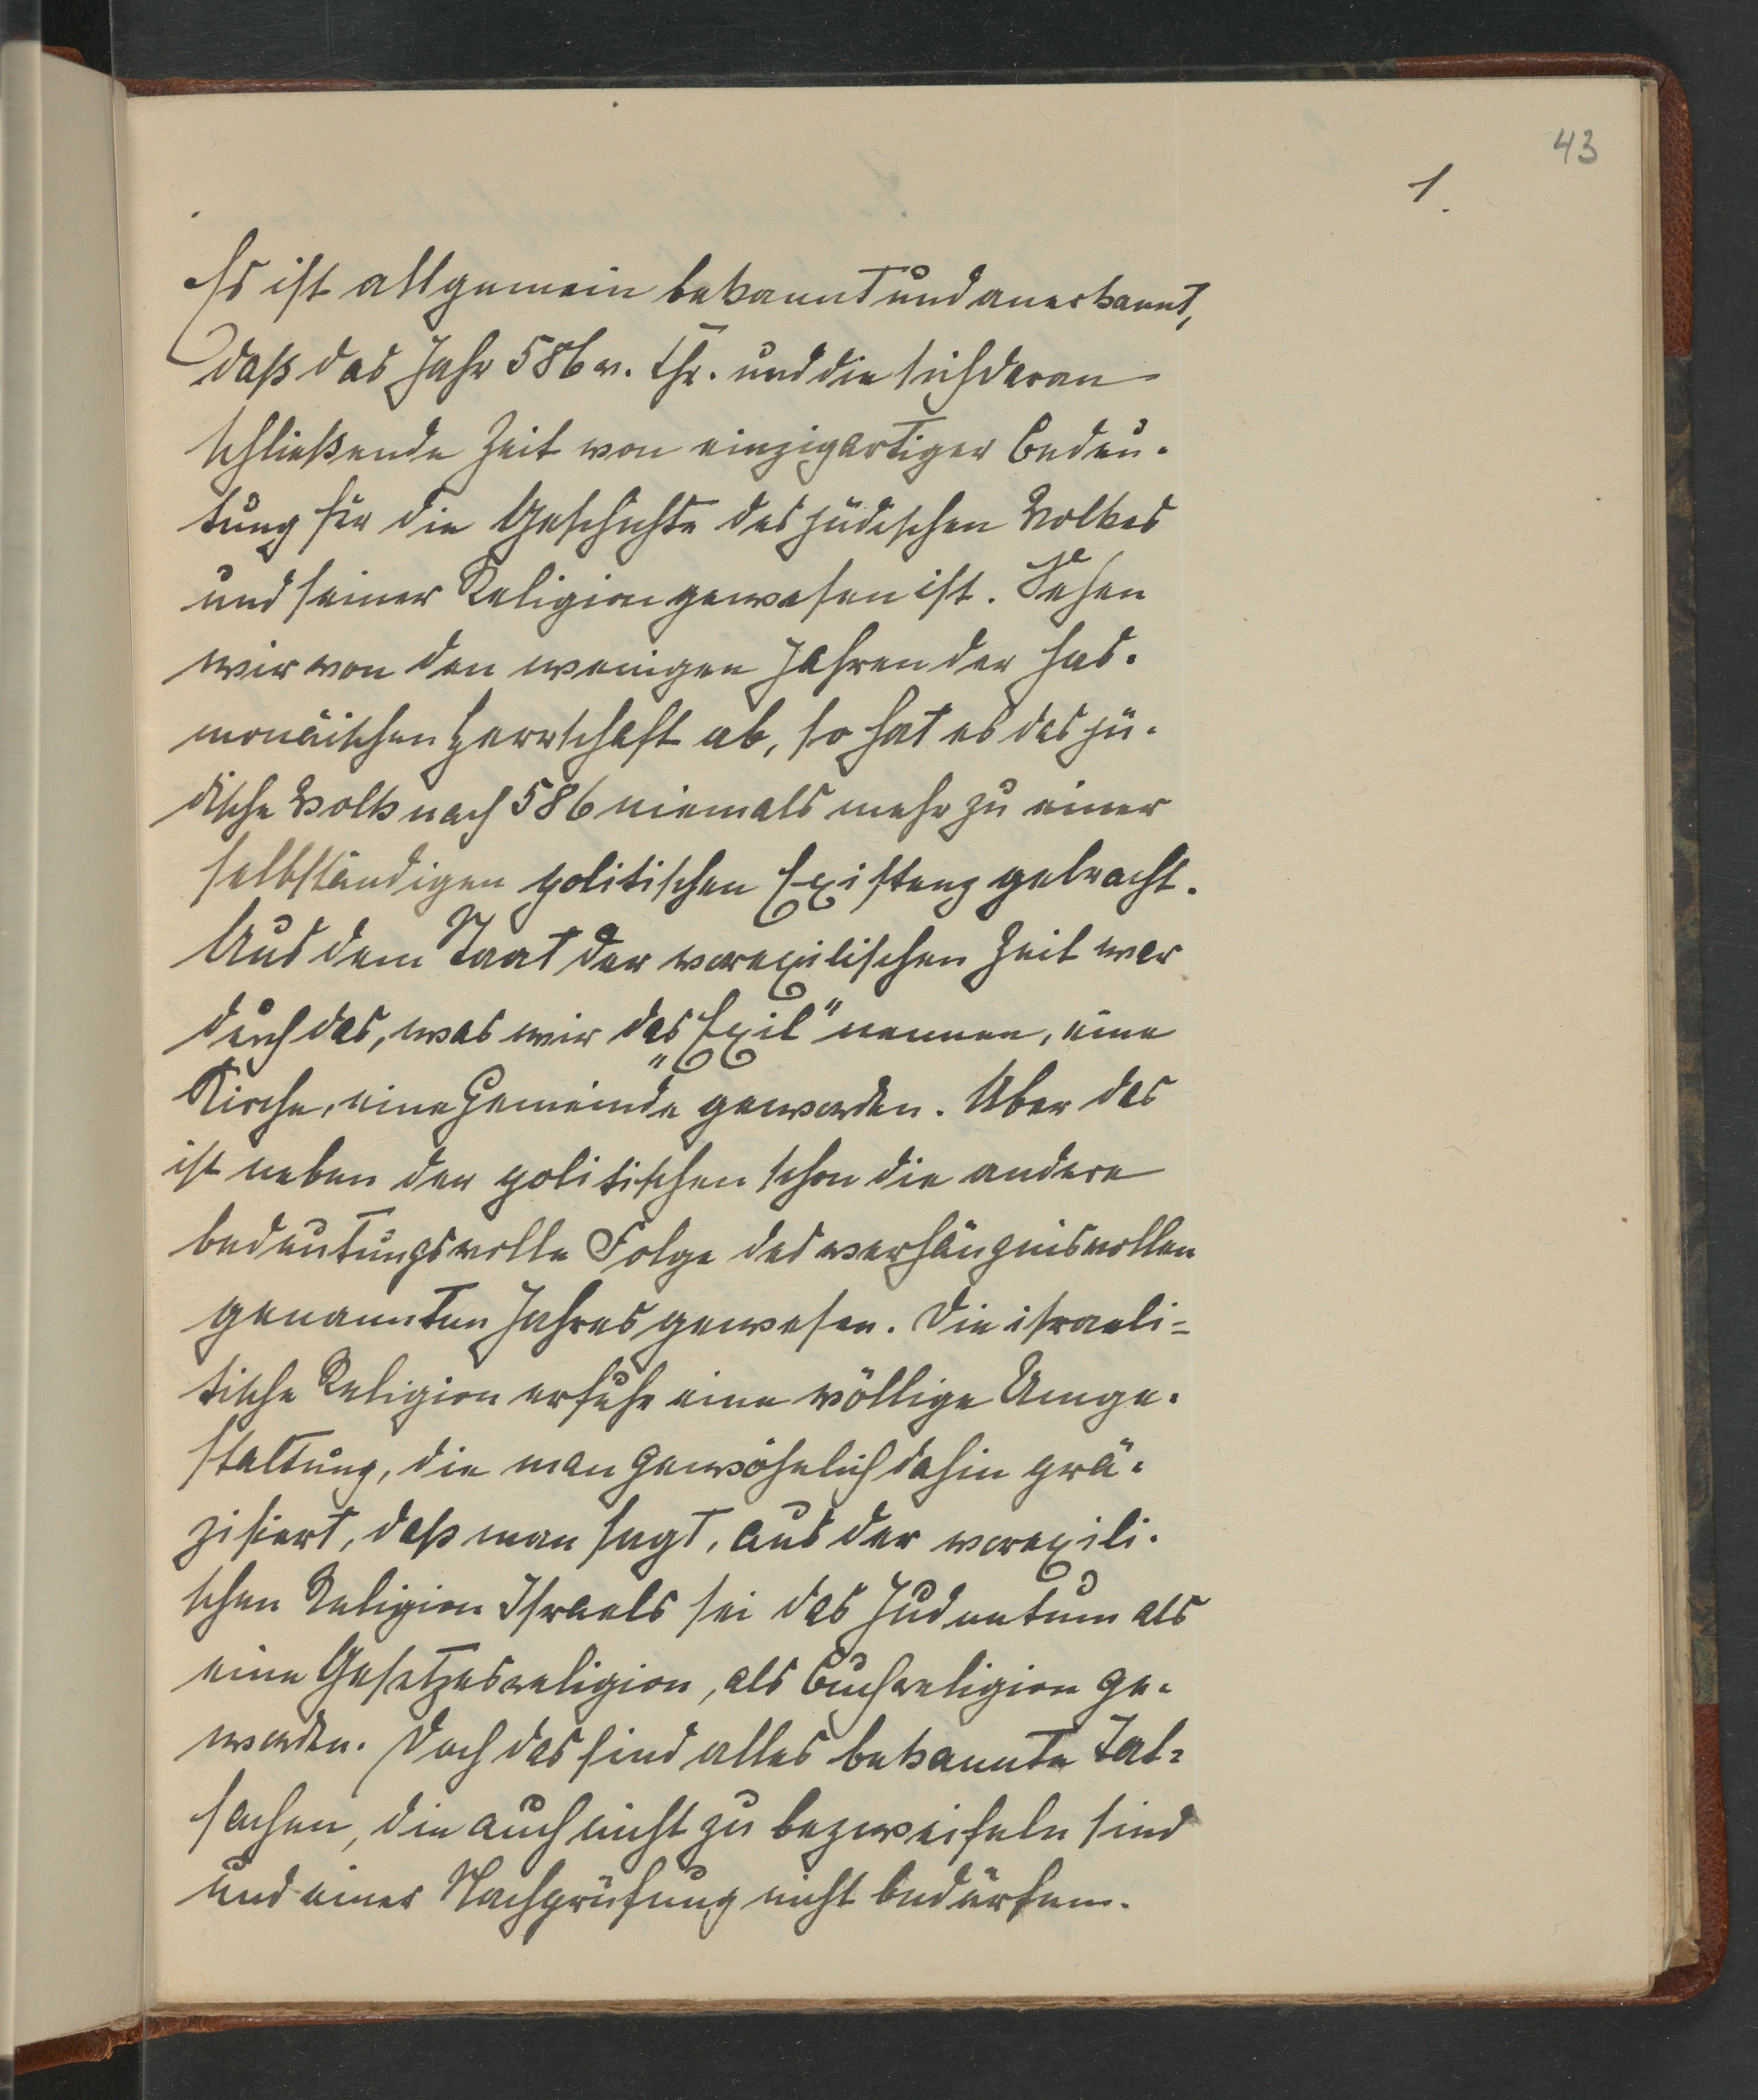 43
1.
Es ist allgemein bekannt und anerkannt,
daß das Jahr 586 v. Chr. und die sich daran
schließende Zeit von einzigartiger Bedeu-
tung für die Geschichte des jüdischen Volkes
und seiner Religion gewesen ist. Sehen
wir von den wenigen Jahren der has-
monäischen Herrschaft ab, so hat es das jü-
dische Volk nach 586 niemals mehr zu einer
selbständigen politischen Existenz gebracht.
Aus dem Staat der vorexilischen Zeit war
durch das, was wir das „Exil“ nennen, eine
Kirche, eine Gemeinde geworden. Aber das
ist neben der politischen schon die andere
bedeutungsvolle Folge des verhängnisvollen
genannten Jahres gewesen. Die israeli-
tische Religion erfuhr eine völlige Umge-
staltung, die man gewöhnlich dahin prä-
zisiert, daß man sagt, aus der vorexili-
schen Religion Israels sei das Judentum als
eine Gesetzesreligion, als Buchreligion ge-
worden. Doch das sind alles bekannte Tat-
sachen, die auch nicht zu bezweifeln sind
und einer Nachprüfung nicht bedürfen.